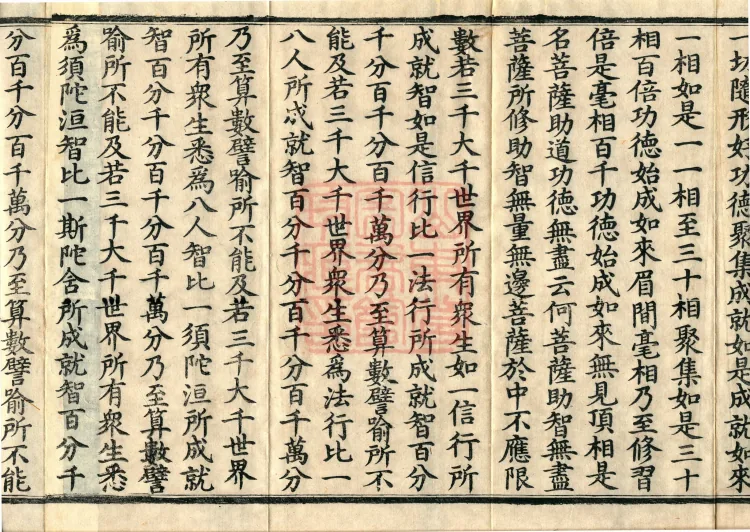 一切隨形好功德聚集成就如是成就如來
一相如是一一相至三十相聚集如是三十
相百倍功德始成如來眉間毫相乃至修習
倍是毫相百千功德始成如來無見頂相是
名菩薩助道功德無盡云何菩薩助智無盡
菩薩所修助智無量無邊菩薩於中不應限
數若三千大千世界所有衆生如一信行所
成就智如是信行比一法行所成就智百分
千分百千分百千萬分乃至算數譬喻所不
能及若三千大千世界衆生悉爲法行比一
八人所成就智百分千分百千分百千萬分
乃至算數譬喻所不能及若三千大千世界
所有衆生悉爲八人智比一須陀洹所成就
智百分千分百千分百千萬分乃至算數譬
喻所不能及若三千大千世界所有衆生悉
爲須陀洹智比一斯陀含所成就智百分千
分百千分百千萬分乃至算數譬喻所不能